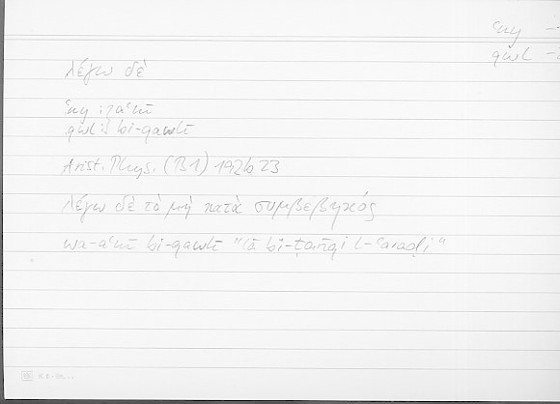 ʿny
qwl
λέγω δὲ
ʿny : aʿnī
qwl : bi-qawlī
Arist. Phys. (B 1) 192b23
λέγω δὲ τὸ μὴ κατὰ συμβεβηκός
wa-aʿnī bi-qawlī "lā bi-ṭarīqi l-ʿaraḍi"